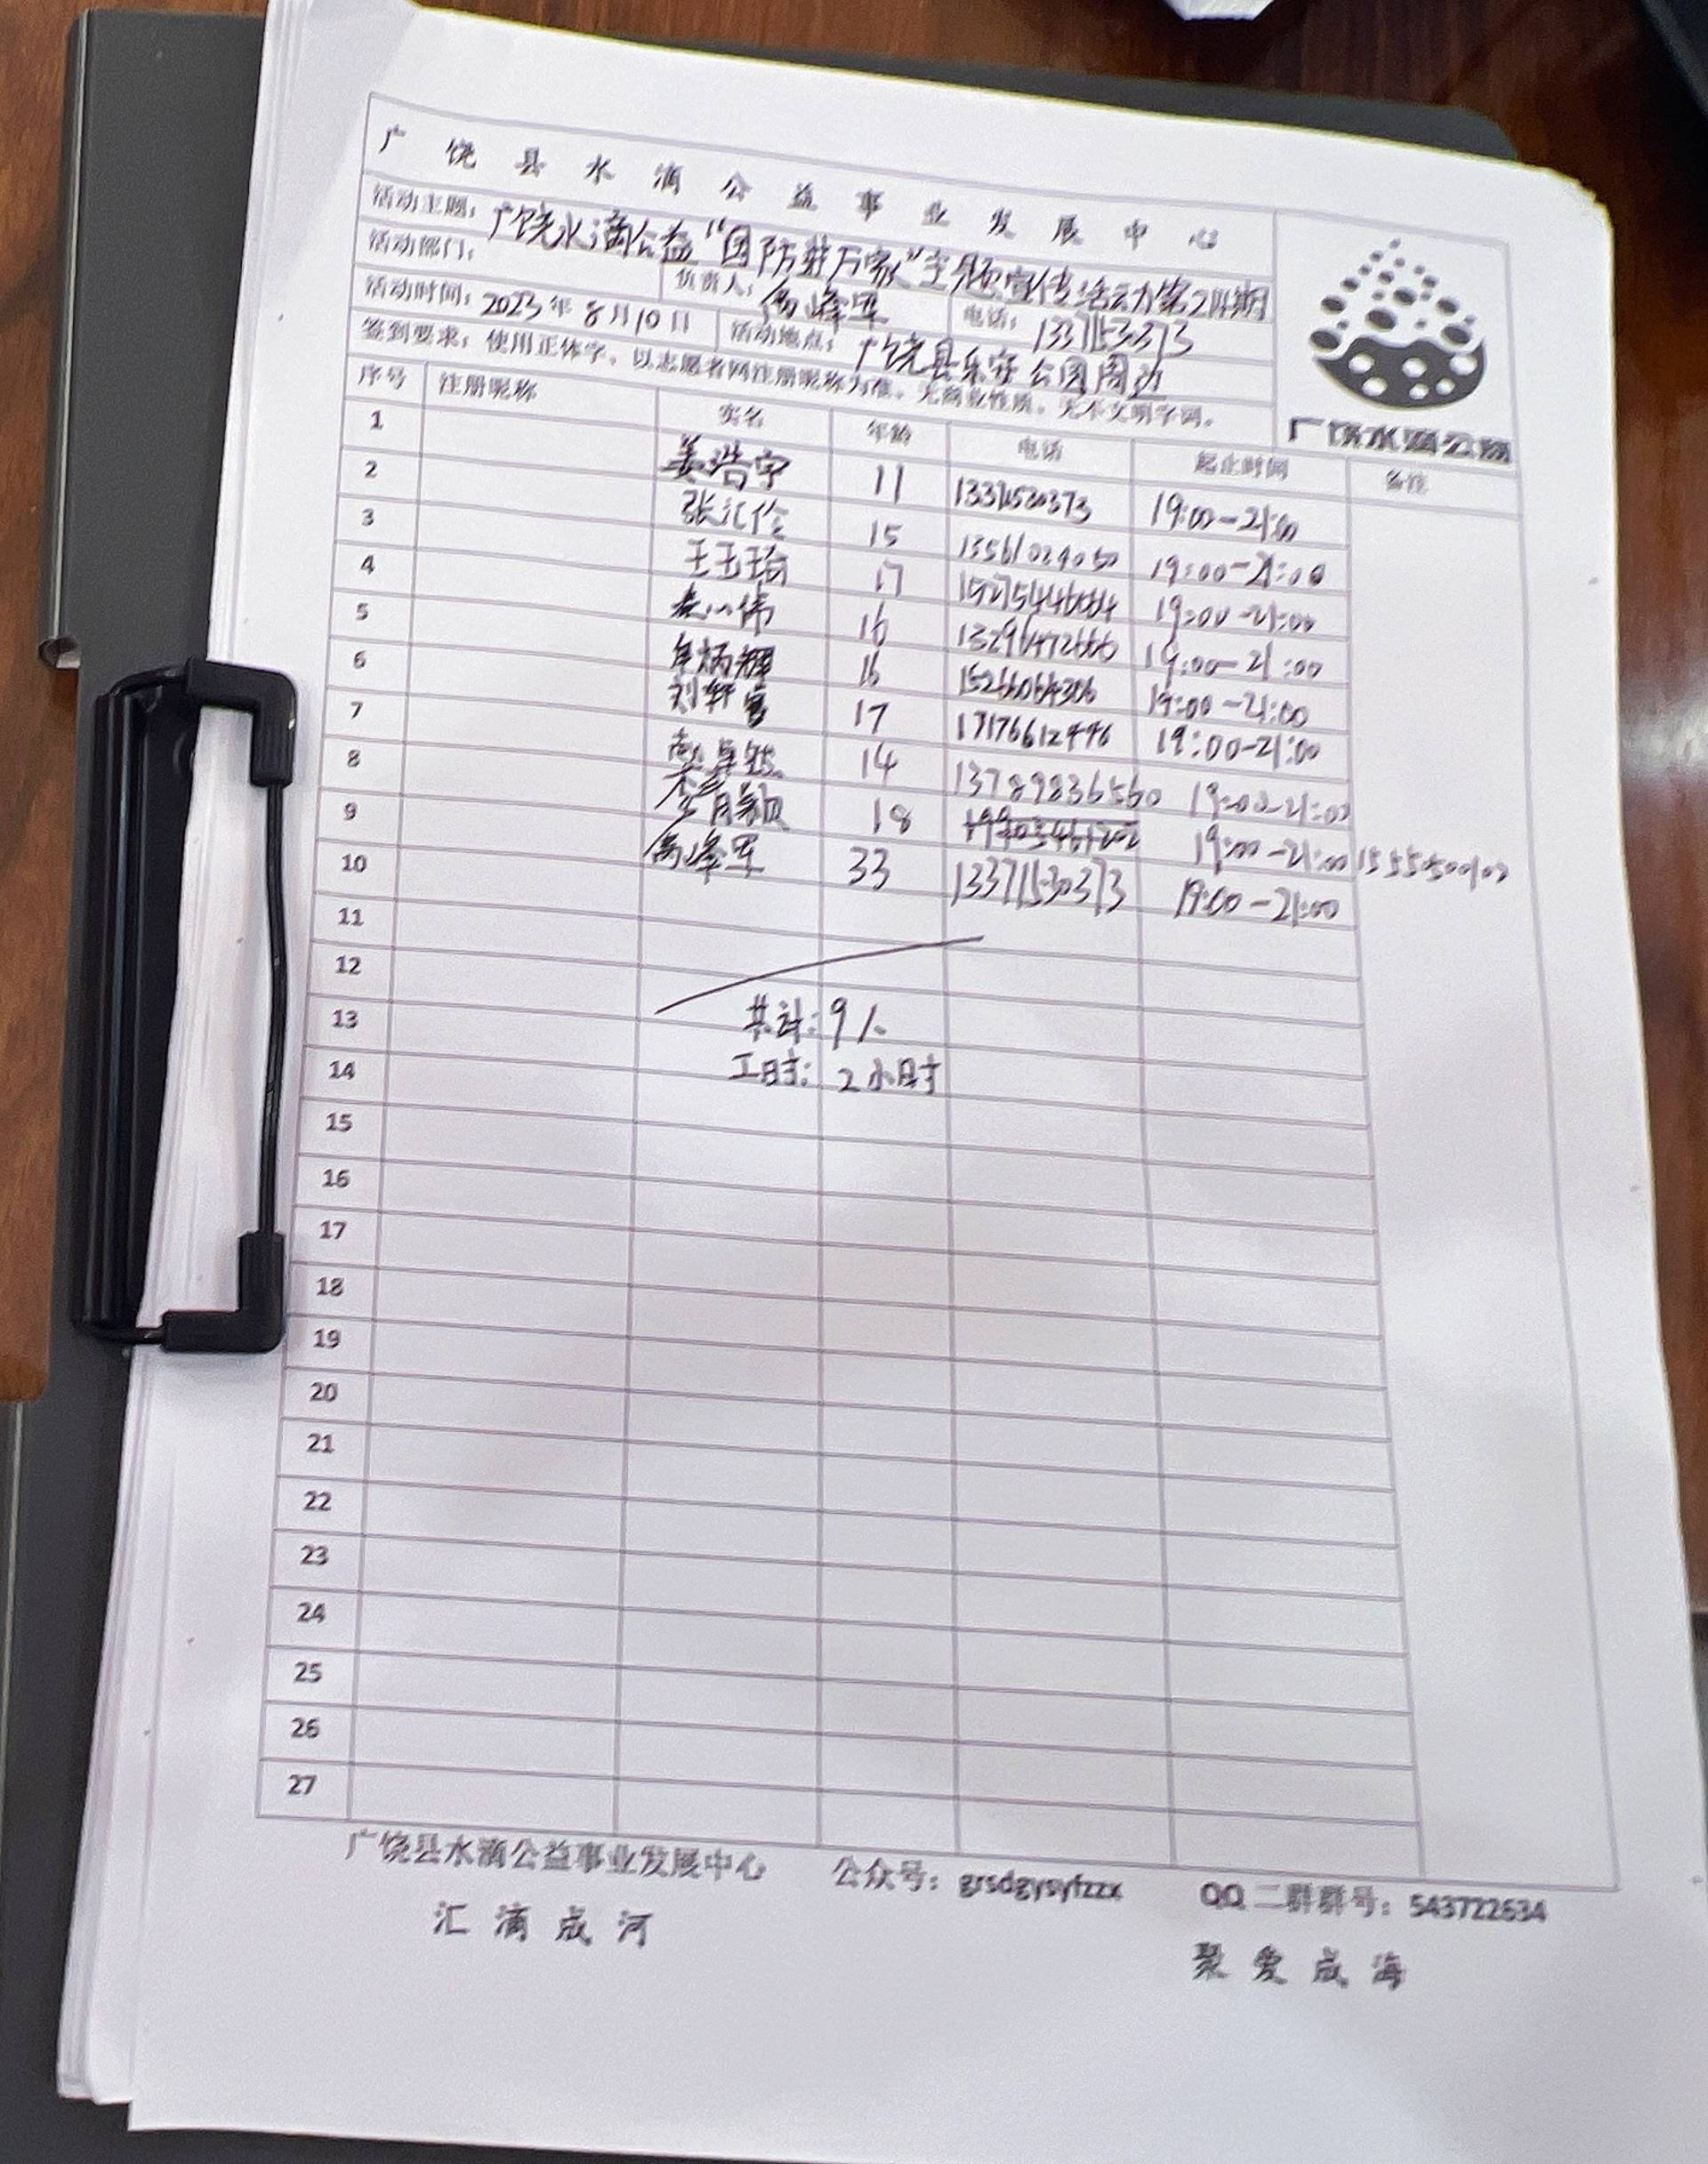 广饶县水滴公益事业发展中心
活动主题：广饶水滴公益“国防在万家”主题宣传活动第211期
活动部门： 负责人： 电话：13371530373
活动时间：2023年8月10日 活动地点：广饶县乐安公园周边
签到要求：使用正体字，以志愿者网注册昵称为准，无商业性质，无不文明字词。
广饶水滴公益
序号 注册昵称 实名 年龄 电话 起止时间 备注
1 姜浩宇 11 13371530373 19:00-21:00
2 张汇伦 15 13561024050 19:00-21:00
3 王玉珀 17 19:00-21:00
4 16 19:00-21:00
5 16 19:00-21:00
6 刘轩 17 19:00-21:00
7 14 13789836560 19:00-21:00
8 18 19:00-21:00
9 33 13371530373 19:00-21:00
10
11
12
13 共计：9人
14 工时：2小时
15
16
17
18
19
20
21
22
23
24
25
26
27
广饶县水滴公益事业发展中心 公众号：grsdgysyfzzx QQ二群群号：543722634
汇滴成河 聚爱成海